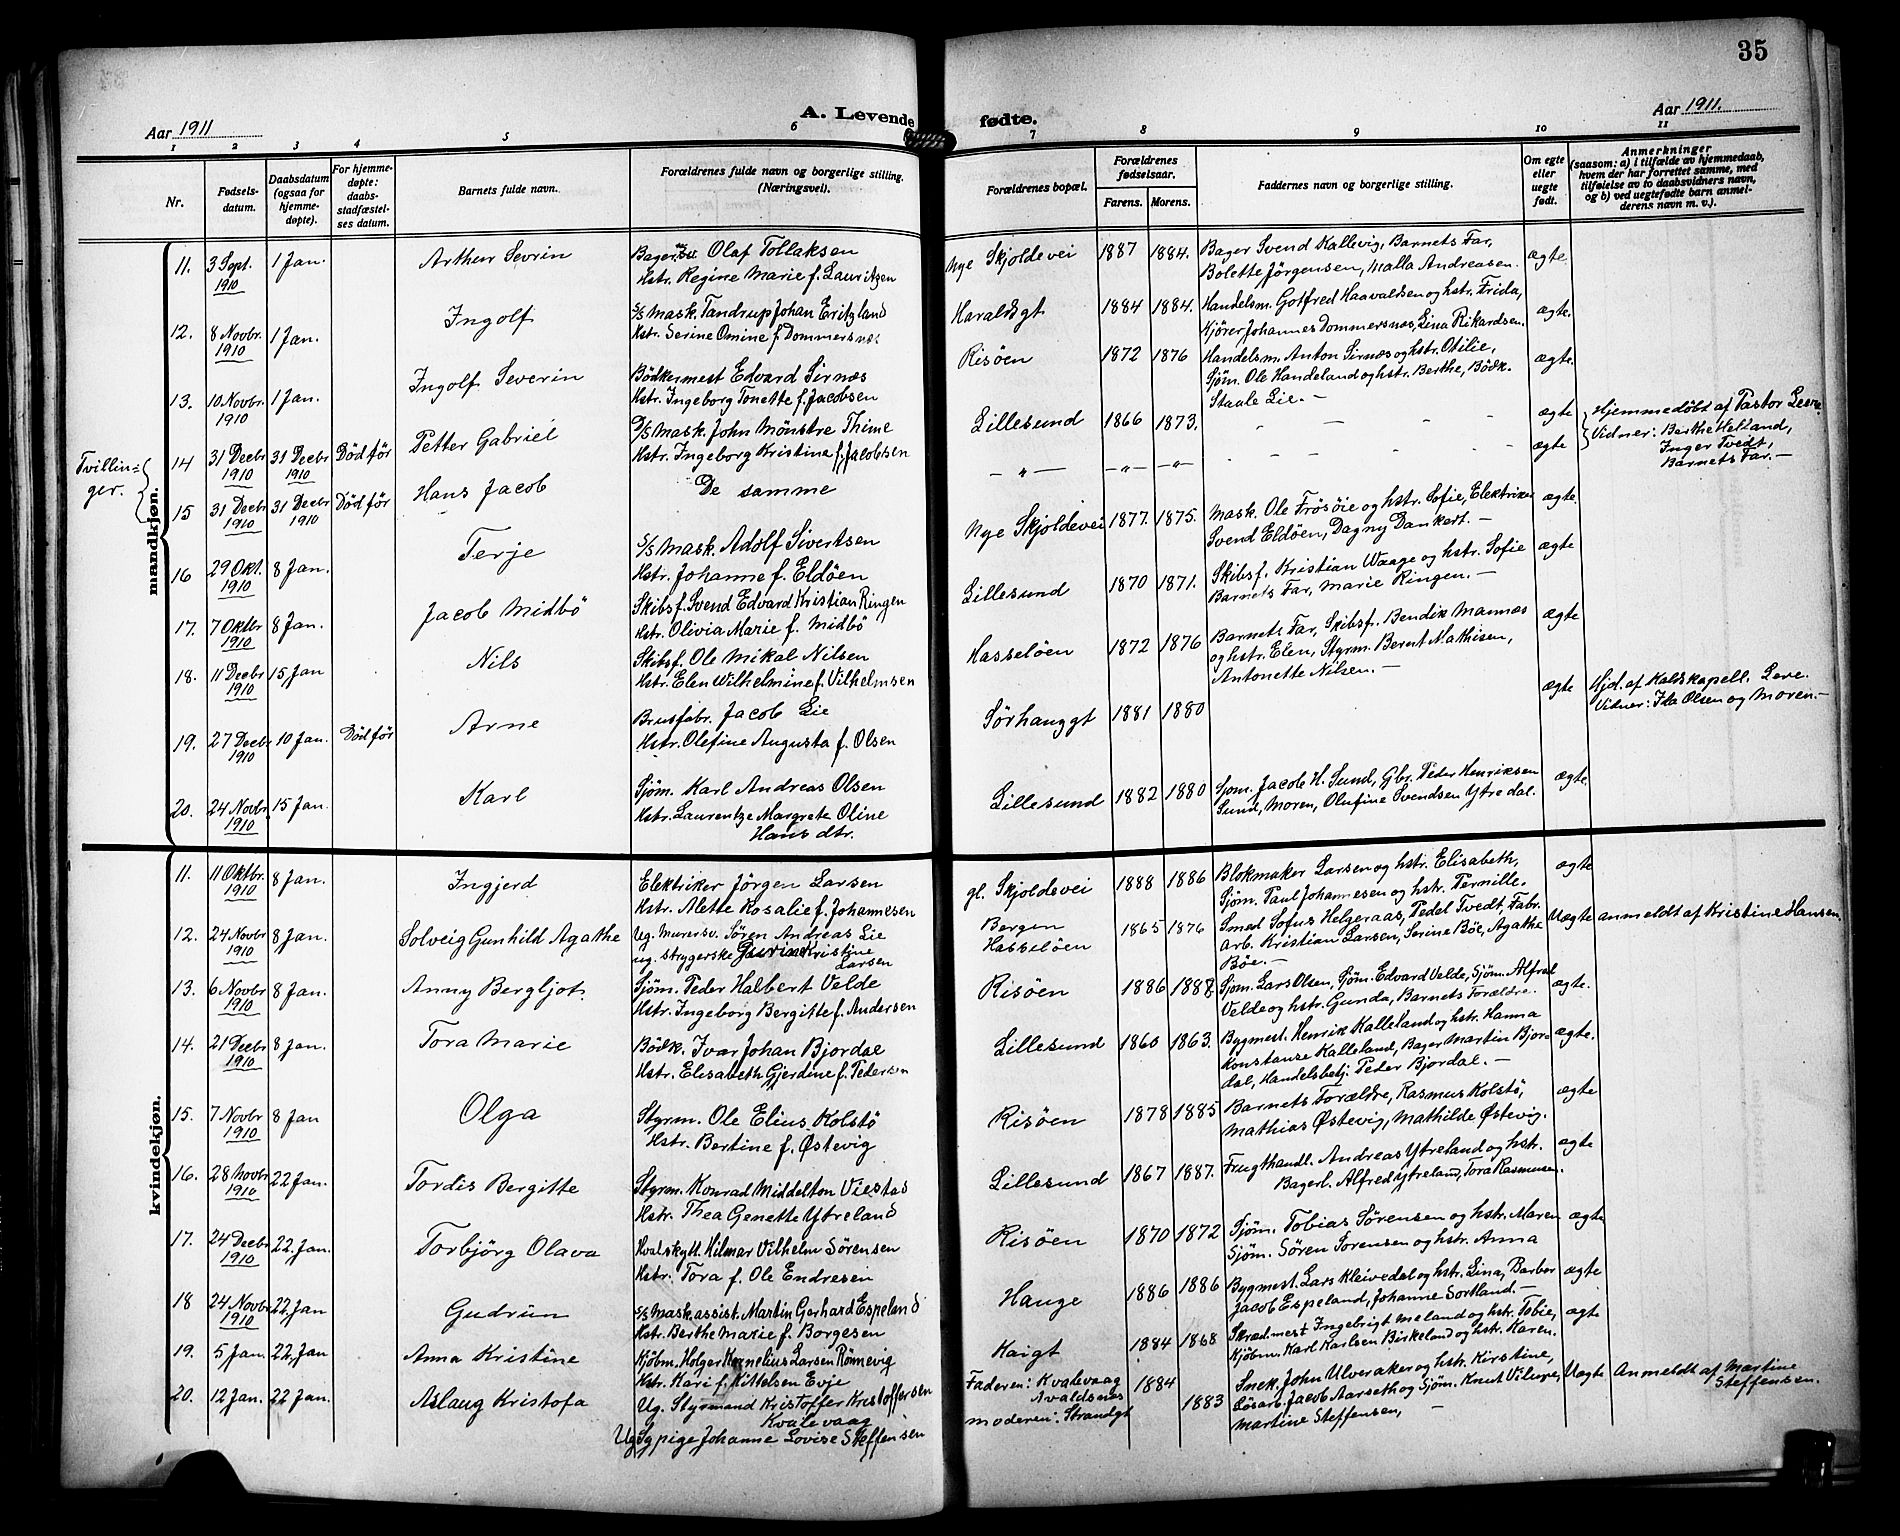 35
Aar 1911
A. Levende fødte.
Aar 1911.
1 2 3 4 5 6 7 8 9 10 11
Nr.
Fødsels-
datum.
Daabsdatum
(ogsaa for
hjemme-
døpte).
For hjemme-
døpte:
daabs-
stadfæstel-
ses datum.
Barnets fulde navn.
Forældrenes fulde navn og borgerlige stilling.
(Næringsvei).
Forældrenes bopæl.
Forældrenes
fødselsaar.
Farens. Morens.
Faddernes navn og borgerlige stilling.
Om egte
eller
uegte
født.
Anmerkninger
(saasom: a) i tilfælde av hjemmedaab,
hvem der har forrettet samme, med
tilføielse av to daabsvidners navn,
og b) ved uegtefødte barn anmel-
derens navn m. v.).
mandkjøn.
11. 3 Sept. 1910 1 Jan. Arthur Severin Bagersv. Olaf Tollaksen
Hstr. Regine Marie f. Lauritzen
Nye Skjoldevei 1887 1884. Bager Svend Kallevig, Barnets Far,
Bolette Jörgensen, Malla Andreasen. ægte
12. 8 Novbr. 1910 1 Jan. Ingolf S/S Mask. Tandrup Johan Eritzland
Hstr. Serine Omine f. Dommersnæs
Haraldsgt 1884 1884. Handelsm. Gotfred Haavaldsen og hstr. Frida,
Kjörer Johannes Dommersnæs, Lina Rikardsen. ægte.
13. 10 Novbr. 1910 1 Jan. Ingolf Severin Bödkermest Edvard Sirnæs
Hstr. Ingeborg Tonette f. Jacobsen
Risöen 1872 1876 Handelsm. Anton Sirnæs og hstr. Otilie,
Sjöm. Ole Handeland og hstr. Berthe, Bödk.
Staale Lie. — ægte.
Tvillin-
ger.
14 31 Decbr 1910 31 Decbr 1910 Död för Petter Gabriel D/S Mask. John Mönstre Thime
Hstr. Ingeborg Kristina f. Jacobsen
Lillesund 1866 1873. ægte Hjemmedöbt af Pastor
Vidner: Berthe Helland,
Inger Tvedt,
Barnets Far. —
15 31 Decbr 1910 31 Decbr 1910 Död för Hans Jacob De samme
— " — — " — — " — ægte
16 29 Okt. 1910 8 Jan. Terje S/S Mask. Adolf Sivertsen
Hstr. Johanne f. Eldöen
Nye Skjoldevei 1877. 1875. Mask. Ole Frösöie og hstr. Sofie, Elektriker
Svend Eldöen, Dagny Dankert. — ægte
17. 7 Oktbr 1910 8 Jan. Jacob Midbö Skibsf. Svend Edvard Kristian Ringen
Hstr. Olivia Marie f. Midbö
Lillesund 1870 1871. Skibsf. Kristian Waage og hstr. Sofie
Barnets Far, Marie Ringen. — ægte
18. 11 Decbr 1910 15 Jan Nils Skibsf. Ole Mikal Nilsen
Hstr. Elen Wilhelmine f. Vilhelmsen
Hasselöen 1872 1876 Barnets Far, Skibsf. Bendik Mannæs
og hstr. Elen, Styrm. Bernt Mathisen,
Antonette Nilsen. — ægte
19. 27 Decbr 1910 10 Jan. Död för Arne Brusfabr. Jacob Lie
Hstr. Olefine Augusta f. Olsen
Sörhauggt 1881 1880 ægte Hjd. af Kaldskapell.
Vidner: Ida Olsen og Moren. —
20. 24 Novbr. 1910 15 Jan. Karl Sjöm. Karl Andreas Olsen
Hstr. Laurentze Margrete Oline
Hans dtr.
Lillesund 1882 1880 Sjöm. Jacob H. Sund, Gbr. Peder Henriksen
Sund, Moren, Olufine Svendsen Ytredal. ægte
kvindekjøn.
11. 11 Oktbr. 1910 8 Jan. Ingjerd Elektriker Jörgen Larsen
Hstr. Alette Rosalie f. Johannesen
gl. Skjoldevei 1888 1886 Blokmaker Larsen og hstr. Elisabeth,
Sjöm. Paul Johannesen og hstr. Pernille. ægte
12. 24 Novbr 1910 8 Jan. Solveig Gunhild Agathe Ug. Murersv. Sören Andreas Lie
ug. Strygerske Kristine
Larsen
Bergen
Hasselöen 1865 1876 Smed Sofus Helgeraas, Pedel Tvedt, Fabr.
arb. Kristian Larsen, Serine Böe, Agathe
Böe. — Uægte anmeldt af Kristine Hansen.
13. 6 Novbr 1910 8 Jan. Anny Bergljot. Sjöm. Peder Halbert Velde
Hstr. Ingeborg Bergitte f. Andersen
Risöen 1886 1888 Sjöm. Lars Olsen, Sjöm. Edvard Velde, Sjöm. Alfred
Velde og hstr. Gunda, Barnets Forældre. ægte.
14. 21 Decbr 1910 8 Jan. Tora Marie Bödk. Ivar Johan Bjordal
Hstr. Elisabeth Gjerdine f. Pedersen
Lillesund 1860 1863. Bygmest. Henrik Kalleland og hstr. Hanna
Konstanse Kalleland, Bager Martin Bjor-
dal, Handelsbetj. Peder Bjordal. — ægte.
15. 7 Novbr 1910 8 Jan Olga Styrm. Ole Elius Kolstö
Hstr. Bertine f. Østevig
Risöen 1878 1885 Barnets Forældre, Rasmus Kolstö,
Mathias Østevig, Mathilde Østevig. ægte
16. 28 Novbr 1910 22 Jan. Tordis Bergitte Styrm. Konrad Middelton Viestad
Hstr. Thea Genette Ytreland
Lillesund 1867 1887. Frugthandl. Andreas Ytreland og hstr.
Bagerl. Alfred Ytreland, Tora Rasmusen. ægte
17. 24 Decbr 1910 22. Jan. Torbjörg Olava Hvalskytt. Hilmar Vilhelm Sörensen
Hstr. Tora f. Ole Endresen
Risöen 1870 1872 Sjöm. Tobias Sörensen og hstr. Maren
Sjöm. Sören Sorensen og hstr. Anna ægte
18 24 Novbr 1910 22, Jan Gudrün S/S Mask. assist. Martin Gerhard Espeland
Hstr. Berthe Marie f. Borgesen
Hauge 1886 1886 Bygmest. Lars Kleivedal og hstr. Lina, Barber
Jacob Espeland, Johanne Sortland. — ægte
19. 5 Jan. 22, Jan Anna Kristine Kjöbm. Holger Kornelius Larsen Rönnevig
Hstr. Kari f. Kittelsen Evje
Haigt 1884 1868 Skrædmest Ingebrigt Meland og hstr. Tobie,
Kjöbm. Karl Karlsen Birkeland og hstr. Karen. ægte
20. 12 Jan. 22 Jan. Aslaug Kristofa Ug. Styrmand Kristoffer Kristoffersen
Kvalevaag
Ug. Sypige Johanne Lovise Steffensen
Faderen: Kvalevaag
Avaldsnes
Moderen: Strandgt 1884 1883 Snek. John Ulveraker og hstr. Kirstine,
Lösarb. Jacob Aarseth og Sjöm. Knut Vilurpe,
Martine Steffensen, — Uægte Anmeldt af Martine
Steffensen.